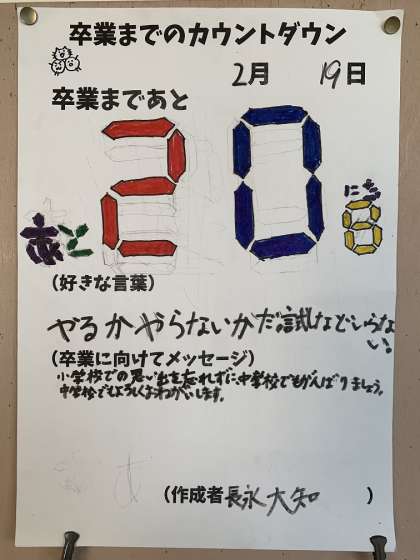 卒業までのカウントダウン
2月 19日
卒業まであと
あと 20 にち
(好きな言葉)
やるかやらないかだ試などいらな
い。
(卒業に向けてメッセージ)
小学校での思い出を忘れずに、中学校でもがんばりましょう。
中学校でもよろしくおねがいします。
(作成者 長永大知 )